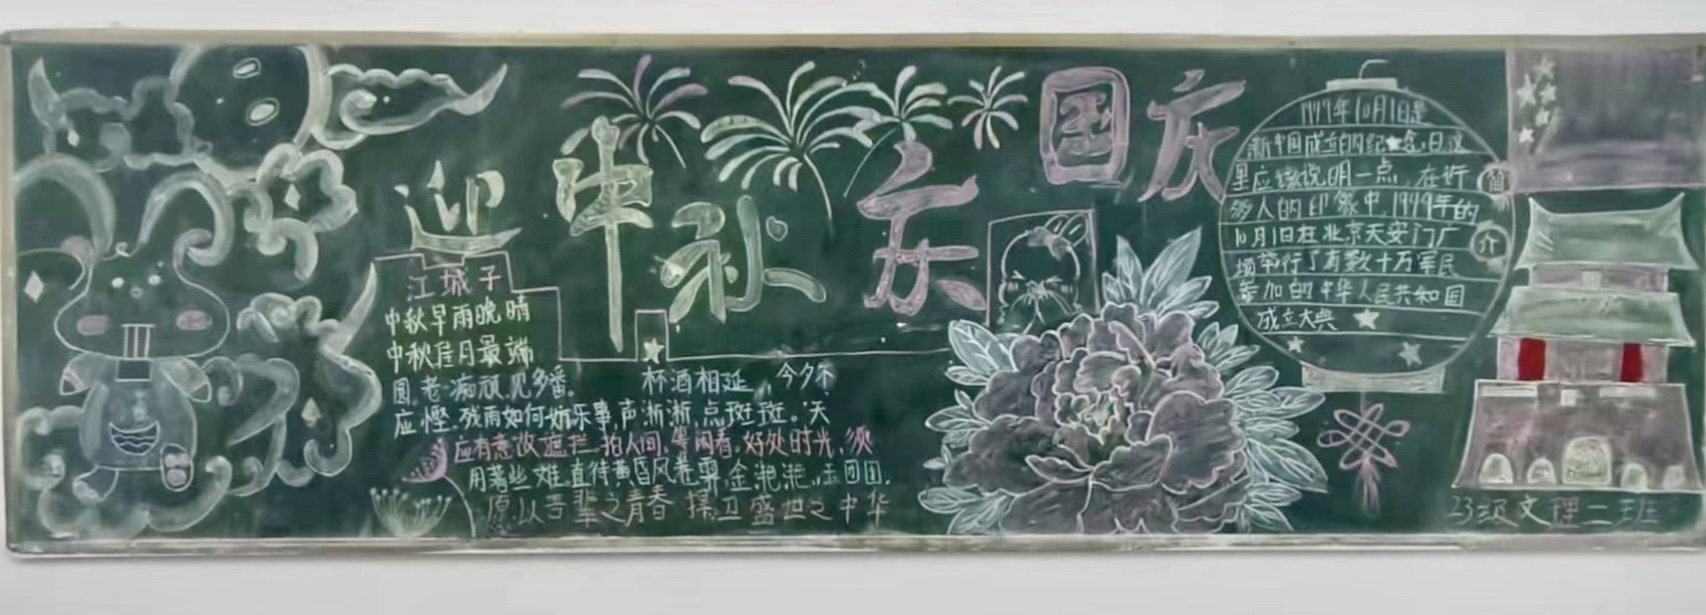 迎中秋 乐国庆
江城子
中秋早雨晚晴
中秋佳月最端
圆。老痴顽,见多番。 杯酒相延,今夕不
应悭。残雨如何妨乐事,声淅淅,点斑斑。天
应有意故遮拦。拍人间,等闲看。好处时光,须
用著些难。直待黄昏风卷霁,金滟滟,玉团团。
愿以吾辈之青春 捍卫盛世之中华
简介
1949年10月1日是
新中国成立的纪念日,这
里应该说明一点,在许
多人的印象中,1949年的
10月1日在北京天安门广
场举行了有数十万军民
参加的中华人民共和国
成立大典
23级文理二班